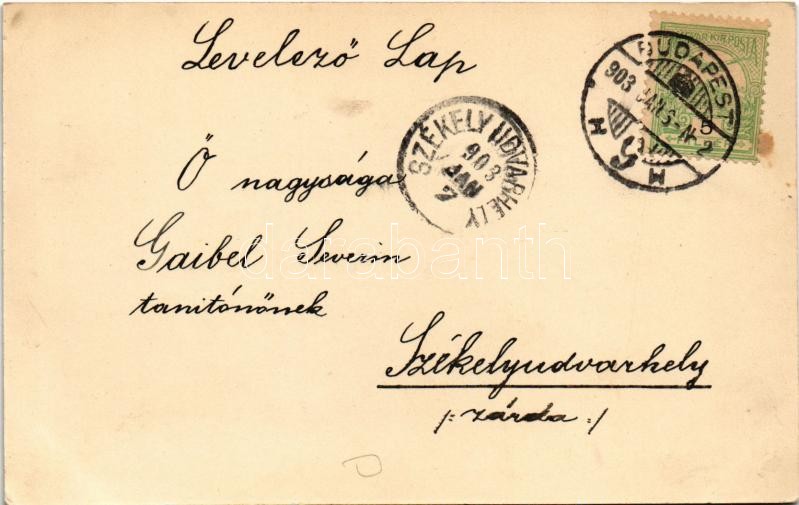 Levelező Lap
MAGYAR KIR. POSTA
BUDAPEST
903 JAN 5
SZÉKELYUDVARHELY
903
JAN
7
Ő nagysága
Gaibel Severin
tanítónőnek
darabanth
Székelyudvarhely
/: zárda :/